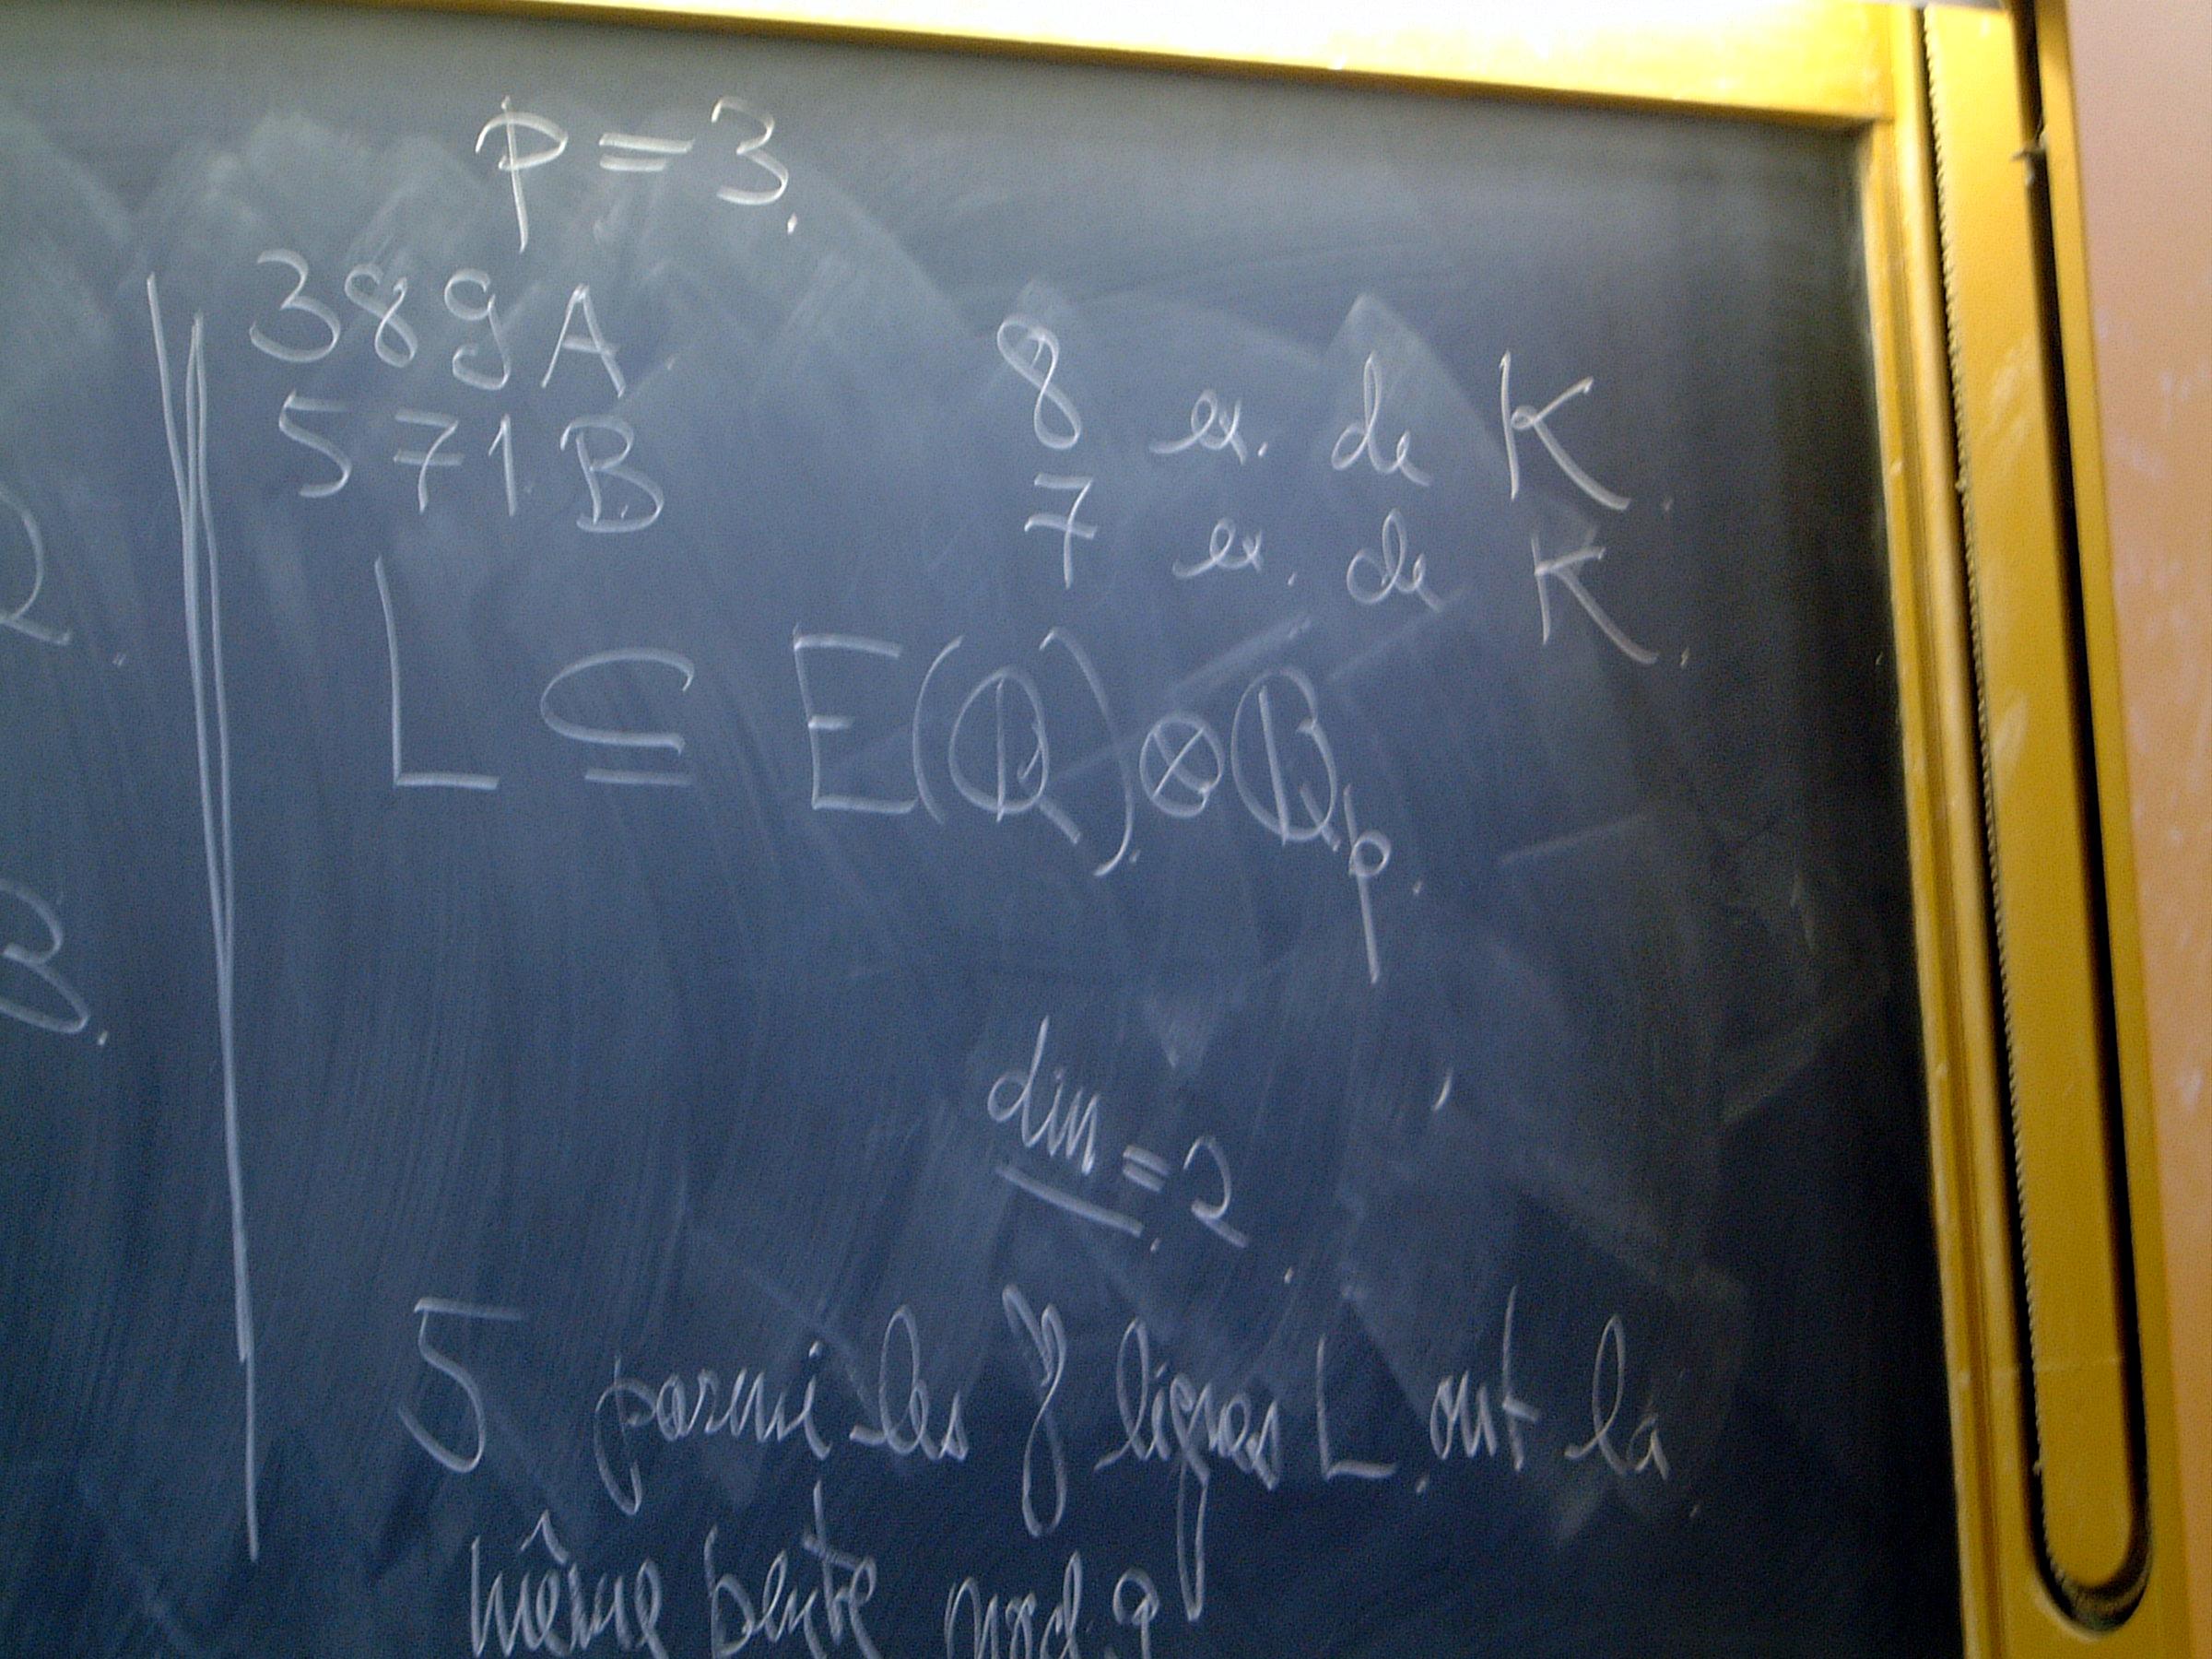 p = 3.
389A 8 ex. de K.
571B 7 ex. de K.
L ⊆ E(ℚ) ⊗ ℚp.
dim = 2
5 parmi les 8 lignes L ont la
même pente mod. 9